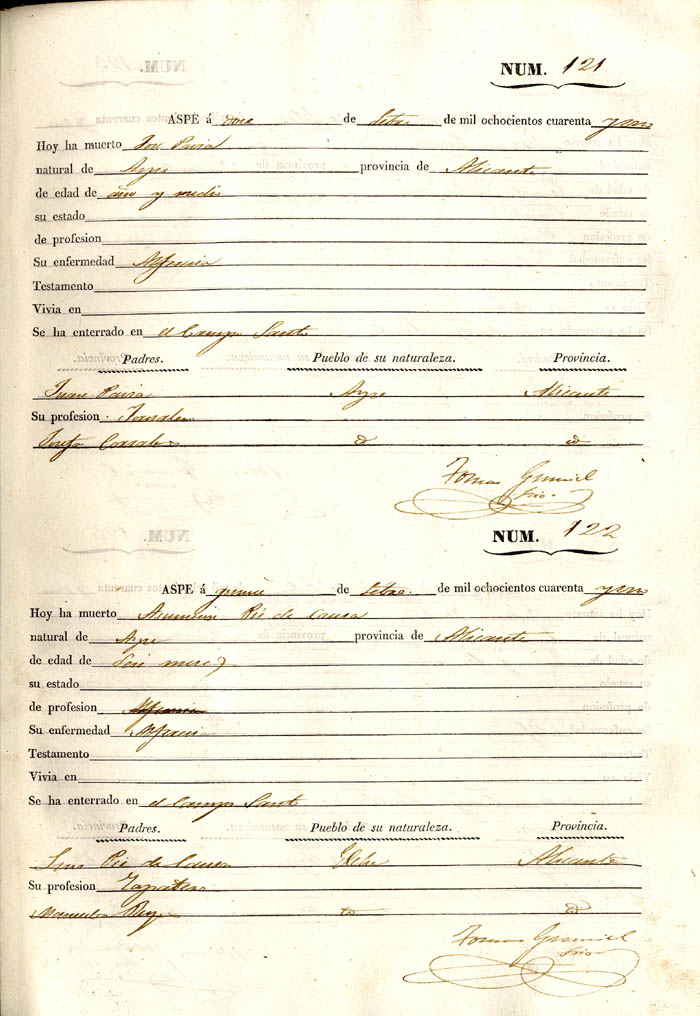 NUM. 121
ASPE á once de Setbre. de mil ochocientos cuarenta y uno
Hoy ha muerto José Pavia
natural de Aspe provincia de Alicante
de edad de año y medio
su estado
de profesion
Su enfermedad Alferecia
Testamento
Vivia en
Se ha enterrado en el Campo Santo
Padres. Pueblo de su naturaleza. Provincia.
Juan Pavia Aspe Alicante
Su profesion
Corrales
Tomas
NUM. 122
ASPE á quince de Setbre. de mil ochocientos cuarenta y uno
Hoy ha muerto Asuncion
natural de Aspe provincia de Alicante
de edad de seis meses
su estado
de profesion
Su enfermedad Alferecia
Testamento
Vivia en
Se ha enterrado en el Campo Santo
Padres. Pueblo de su naturaleza. Provincia.
Elche Alicante
Su profesion Zapatero
Manuela
Tomas